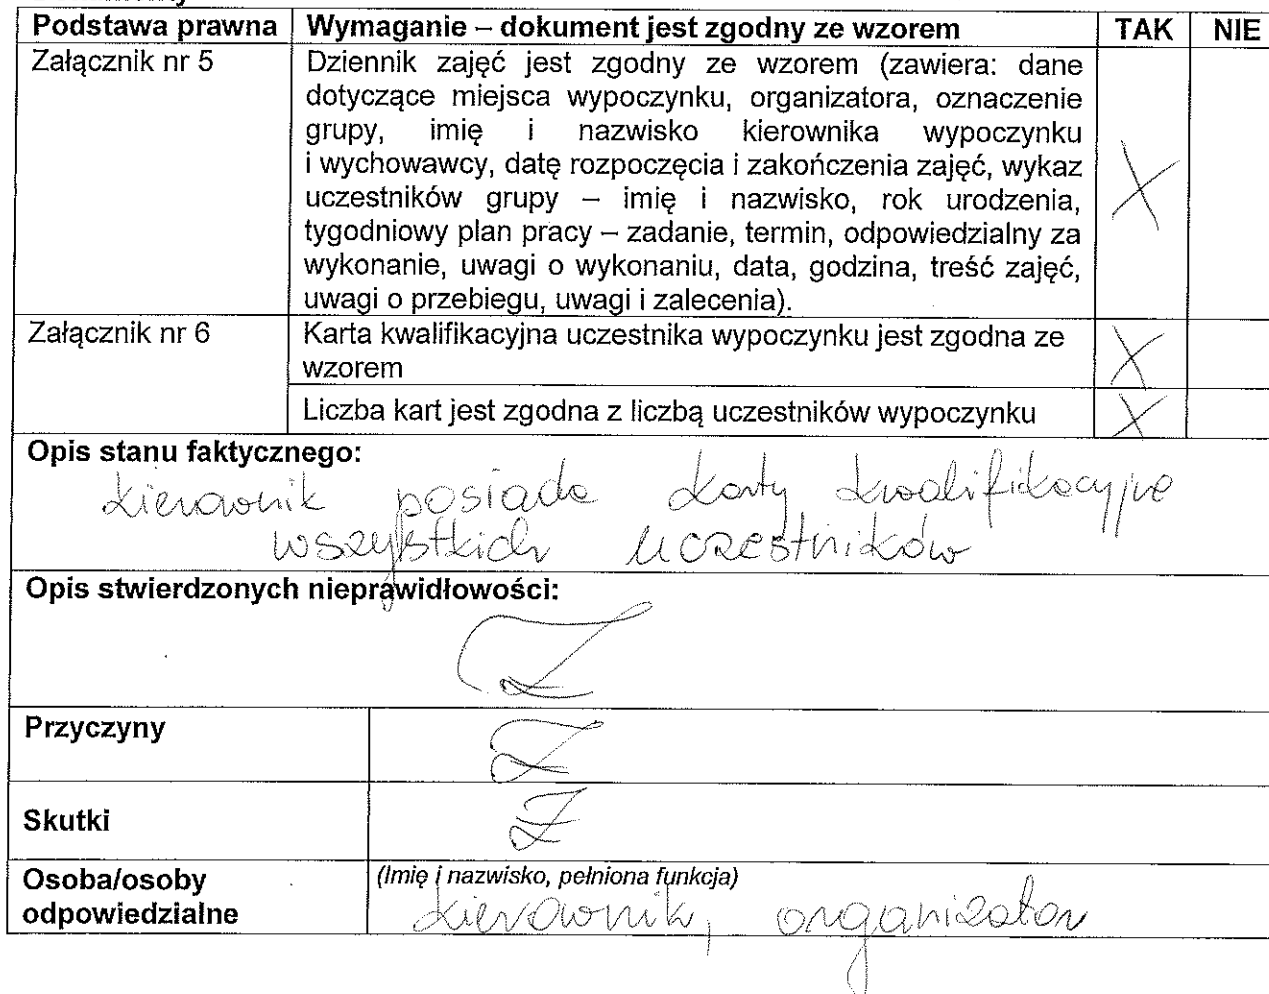 Podstawa prawna Wymaganie – dokument jest zgodny ze wzorem TAK NIE
Załącznik nr 5 Dziennik zajęć jest zgodny ze wzorem (zawiera: dane
dotyczące miejsca wypoczynku, organizatora, oznaczenie
grupy, imię i nazwisko kierownika wypoczynku
i wychowawcy, datę rozpoczęcia i zakończenia zajęć, wykaz
uczestników grupy – imię i nazwisko, rok urodzenia,
tygodniowy plan pracy – zadanie, termin, odpowiedzialny za
wykonanie, uwagi o wykonaniu, data, godzina, treść zajęć,
uwagi o przebiegu, uwagi i zalecenia).
X
Załącznik nr 6 Karta kwalifikacyjna uczestnika wypoczynku jest zgodna ze
wzorem
X
Liczba kart jest zgodna z liczbą uczestników wypoczynku X
Opis stanu faktycznego:
kierownik posiada karty kwalifikacyjne
wszystkich uczestników
Opis stwierdzonych nieprawidłowości:
Przyczyny
Skutki
Osoba/osoby
odpowiedzialne
(Imię i nazwisko, pełniona funkcja)
kierownik, organizator